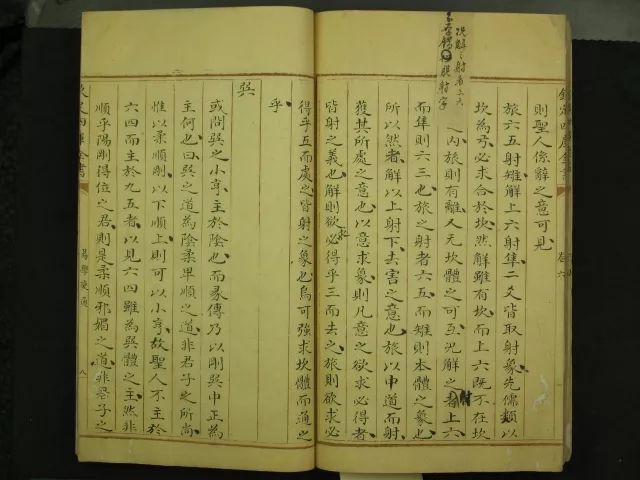 則聖人係辭之意可見
旅六五射雉解上六射隼二爻皆取射象先儒類以
坎為弓必求合於坎然解雖有坎而上六既不在坎
之內旅則有離又无坎體之可互況解之者上六
而隼則六三也旅之射者六五而雉則本體之象也
所以然者解以上射下去害之意也旅以中道而射
獲其所處之意也以意求象則凡意之欲求必得者
皆射之義也解則欲必得乎三而去之旅則欲求必
得乎五而處之皆射之象也烏可強求坎體而通之
乎
巽
或問巽之小亨主於陰也而彖傳乃以剛巽中正為
主何也曰巽之道為陰柔卑順之道非君子之所尚
惟以柔順剛以下順上則可以小亨故聖人不主於
六四而主於九五者以見六四雖為巽體之主然非
順乎陽剛得位之君則是柔順邪媚之道非君子之
易學變通
卷六
八
況解之射者上六